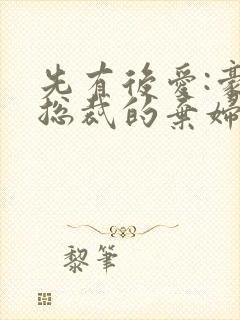 先有後愛:豪
總裁的棄婦
黎筆